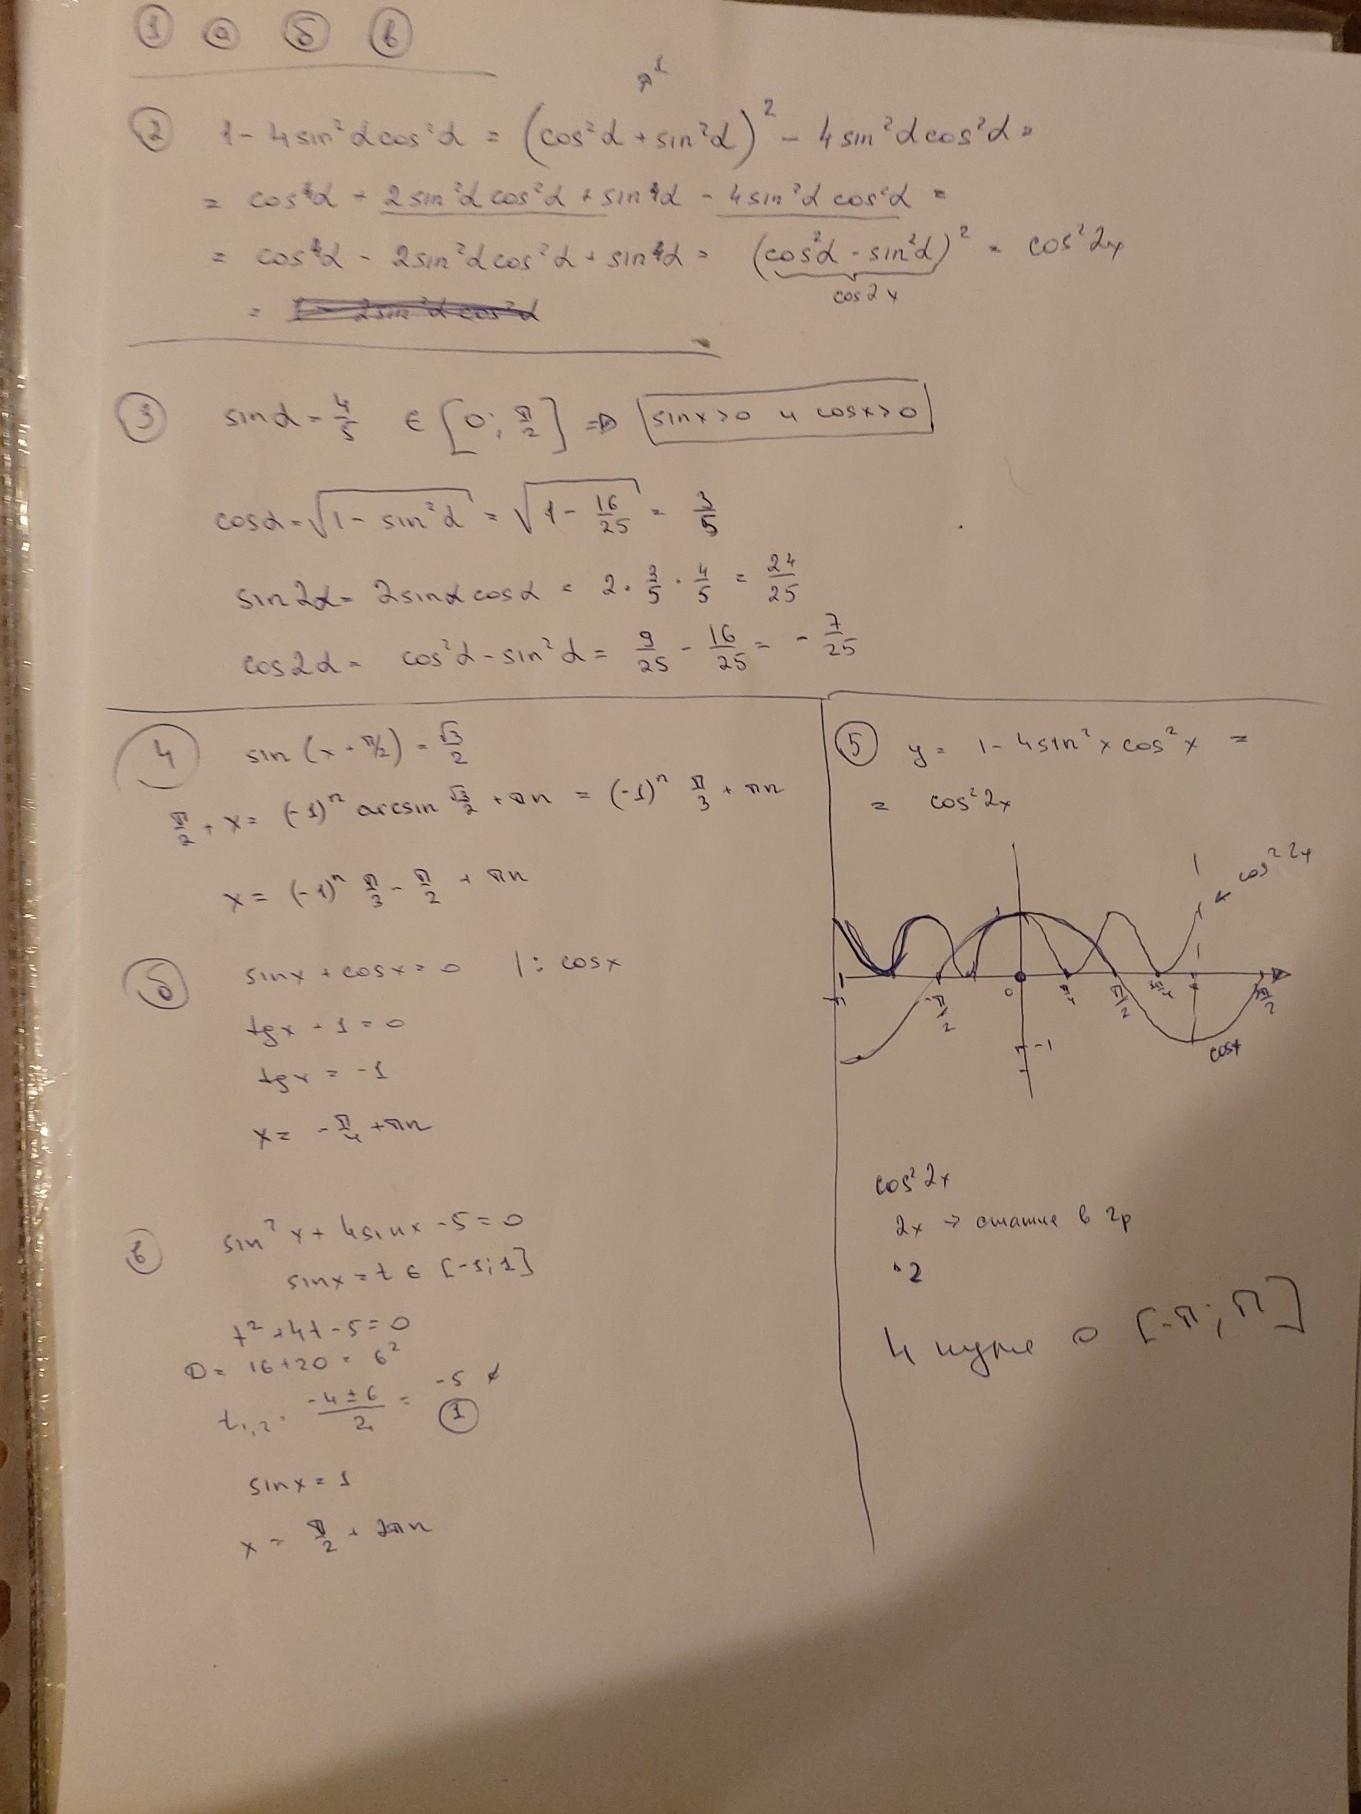 ① а б в
1
② 1 - 4sin²αcos²α = (cos²α + sin²α)² - 4sin²αcos²α =
= cos⁴α + 2sin²αcos²α + sin⁴α - 4sin²α cos²α =
= cos⁴α - 2sin²αcos²α + sin⁴α = (cos²α - sin²α)² = cos²2x
cos2x
=
③ sinα = 4/5 ∈ [0; π/2] => sinx>0 и cosx>0
cosα = √(1 - sin²α) = √(1 - 16/25) = 3/5
sin2α = 2sinαcosα = 2 · 3/5 · 4/5 = 24/25
cos2α = cos²α - sin²α = 9/25 - 16/25 = - 7/25
④ sin(x + π/2) = √3/2
π/2 + x = (-1)ⁿ arcsin √3/2 + πn = (-1)ⁿ π/3 + πn
x = (-1)ⁿ π/3 - π/2 + πn
б sinx + cosx = 0 |: cosx
tgx + 1 = 0
tgx = -1
x = -π/4 + πn
в sin²x + 4sinx - 5 = 0
sinx = t ∈ [-1; 1]
t² + 4t - 5 = 0
D = 16+20 = 6²
t₁,₂ = (-4 ± 6)/2 = -5 ∉
1
sinx = 1
x = π/2 + 2πn
⑤ y = 1 - 4sin²x cos²x =
= cos²2x
cos²2x
1
-π -π/2 0 π/4 π/2 3π/4 π 3π/2
-1
cosx
cos²2x
2x → в 2р
2
4 [-π; π]